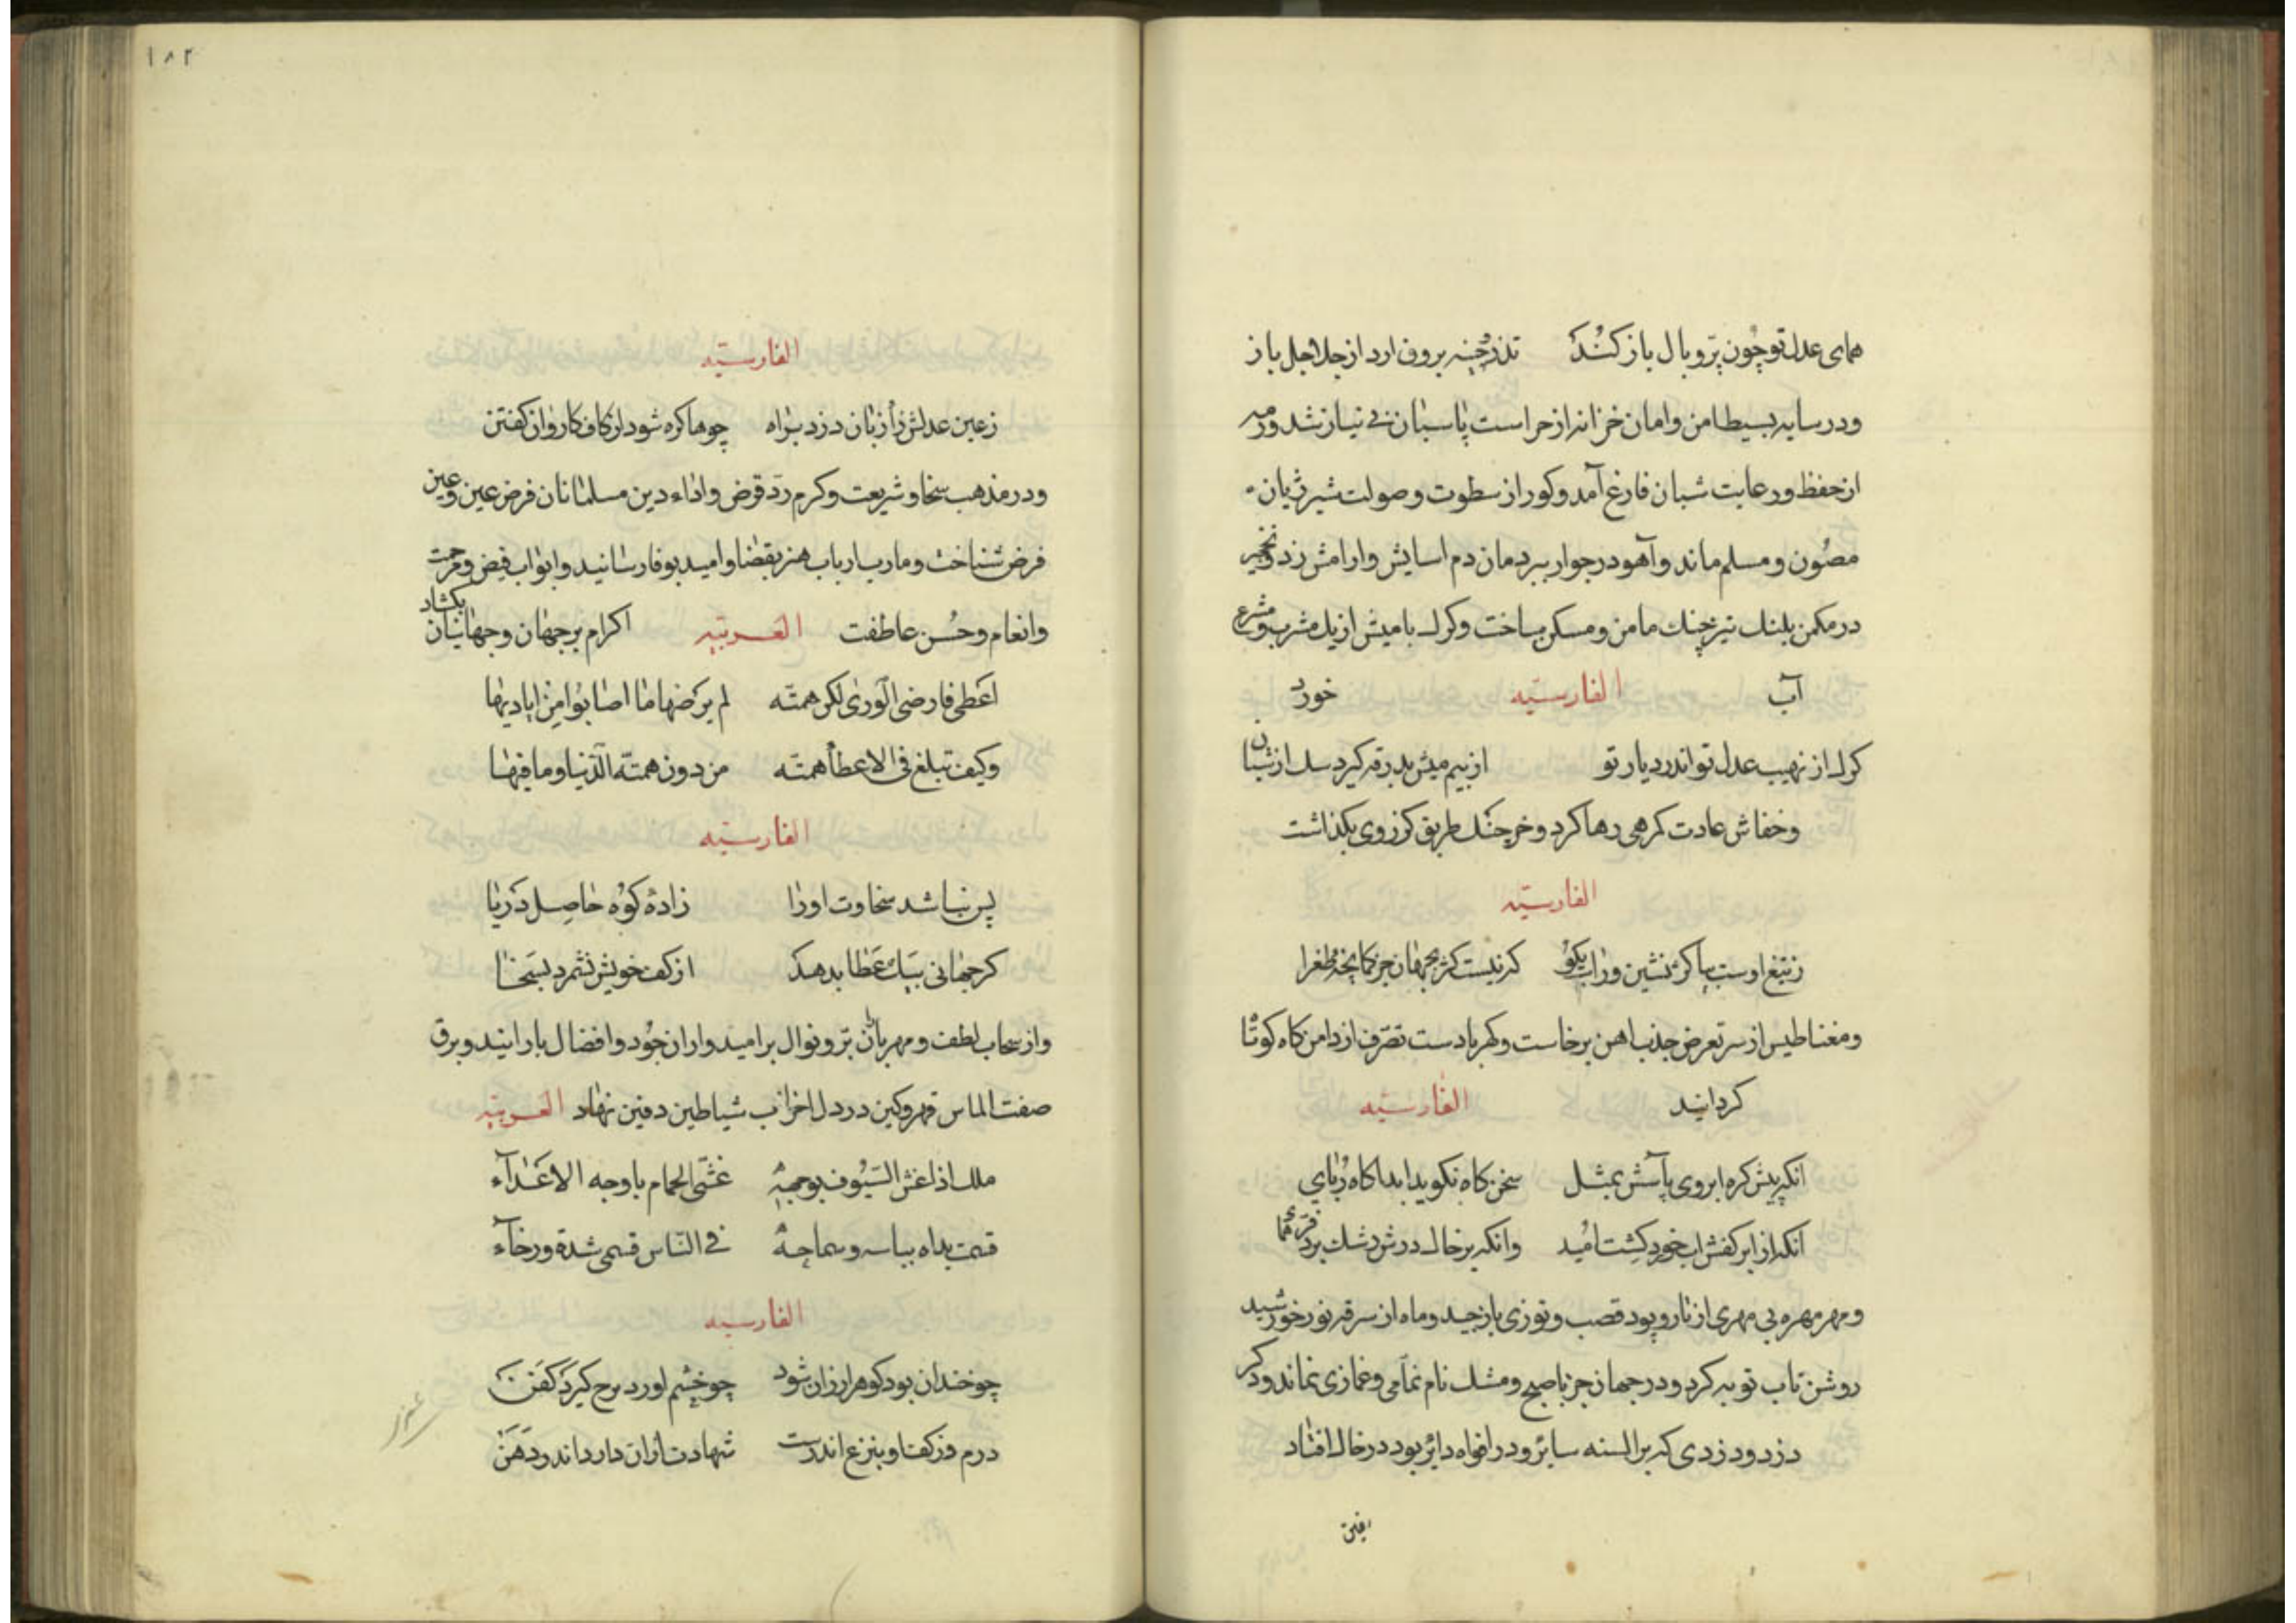 همای عدل تو چون پرّ و بال باز کند تذرو بیرون ارد از اجل باز
ودر سایه بسیط امن وامان خزانه از حراست پاسبان بی نیاز شد ورمه
از حفظ ورعایت شبان فارغ آمد وکور از سطوت وصولت شیر ژیان
مصون ومسلم ماند وآهو در جوار ببر دمان دم اسایش وارامش زد ونخچیر
در مکمن پلنك تیز چنك مامن ومسکن ساخت وکرك با میش از یك مشرب ومشرع
آب الفارسیّه خورد
کرك از نهیب عدل تو اندر دیار تو از بیم میش بدرقه کیرد سك از شبان
وخفاش عادت کمرهی رها کرد وخرچنك طریق کژروی بکذاشت
الفارسیّه
زتیغ اوست کژ نشین وراست بکو که نیست کژ بجهان جز کمانچه طغرا
ومغناطیس از سر تعرض جذب اهن برخاست وکهربا دست تصرّف از دامن کاه کوتا
کردانید الفارسیّه
انکه پیش کره ابروی باسش بمثل سخن کاه نکوید ابدا کاه ربای
انکه از ابر کفش اب خورد کشت امید وانکه بر خاك درش رشك برد فرّ همای
ومهر مهره بی مهری از تار وپود قصب وتوزی بازچید وماه از سرقه نور خورشید
روشن تاب توبه کرد ودر جهان جز با صبح ومشك نام نمّامی وغمازی نماند وذکر
دزد ودزدی که بر السنه سایر ودر افواه دایر بود در خاك افتاد
۱۸۲
الفارسیّه
زعین عدلش زان دزد براه چو ها کره شود از کاف کاروان کفتن
ودر مذهب سخا وشریعت وکرم ردّ قرض واداء دین مسلمانان فرض عین وعین
فرض شناخت ومارب ارباب هنر بقضا وامید بوفا رسانید وابواب فیض ومرحمت
وانعام وحسن عاطفت العربیّه اکرام بر جهان وجهانیان بکشاد
اعطی فارضی الوری لکن همّته لم یرضها ما اصابوا من ایادیها
وکیف تبلغ فی الاعطاء همّته من دون همّته الدّنیا وما فیها
الفارسیّه
پس نباشد سخاوت اورا زادهٔ کوه حاصل دریا
کر جهانی بیك عطا بدهد از کف خویش نشمرد بسخا
واز سحاب لطف ومهربانی برّ ونوال بر امیدواران جود وافضال بارانید وبرق
صفت الماس قهر وکین در دل احزاب شیاطین دفین نهاد العربیّه
ملك اذا السّیوف بوجهه غشّی الحمام باوجه الاعداء
قسمت یداه بباسه وسماحه فی النّاس قسمی شدة ورخاء
الفارسیّه
چو خندان بود کوهر ارزان شود چو خشم اورد مرح کیرد کفن
درم در کف او بنزع اندرست شهادت ازان دارد اندر دهن